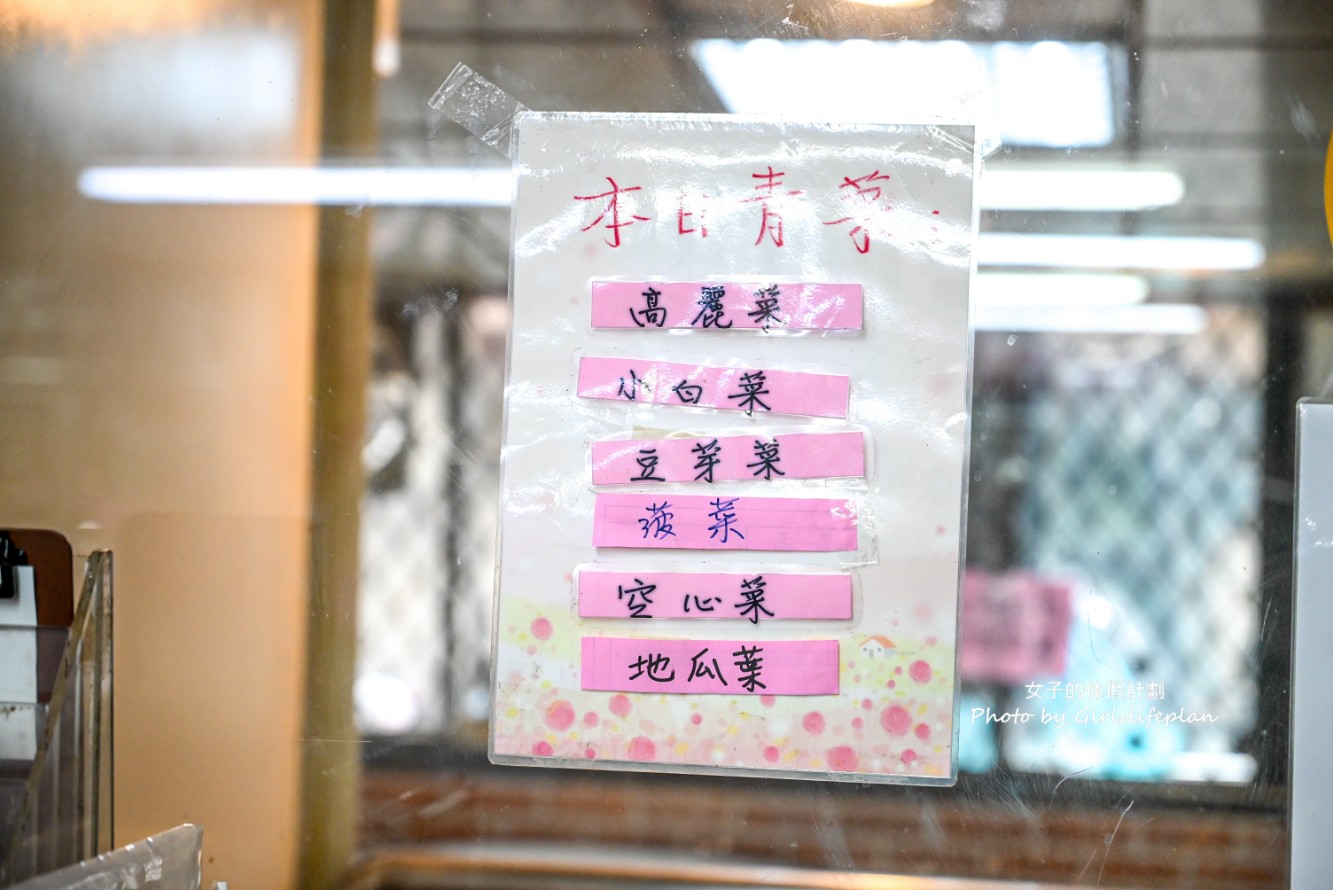 本日青菜:
高麗菜
小白菜
豆芽菜
菠菜
空心菜
地瓜葉
女子的休假計劃
Photo by Girlslifeplan